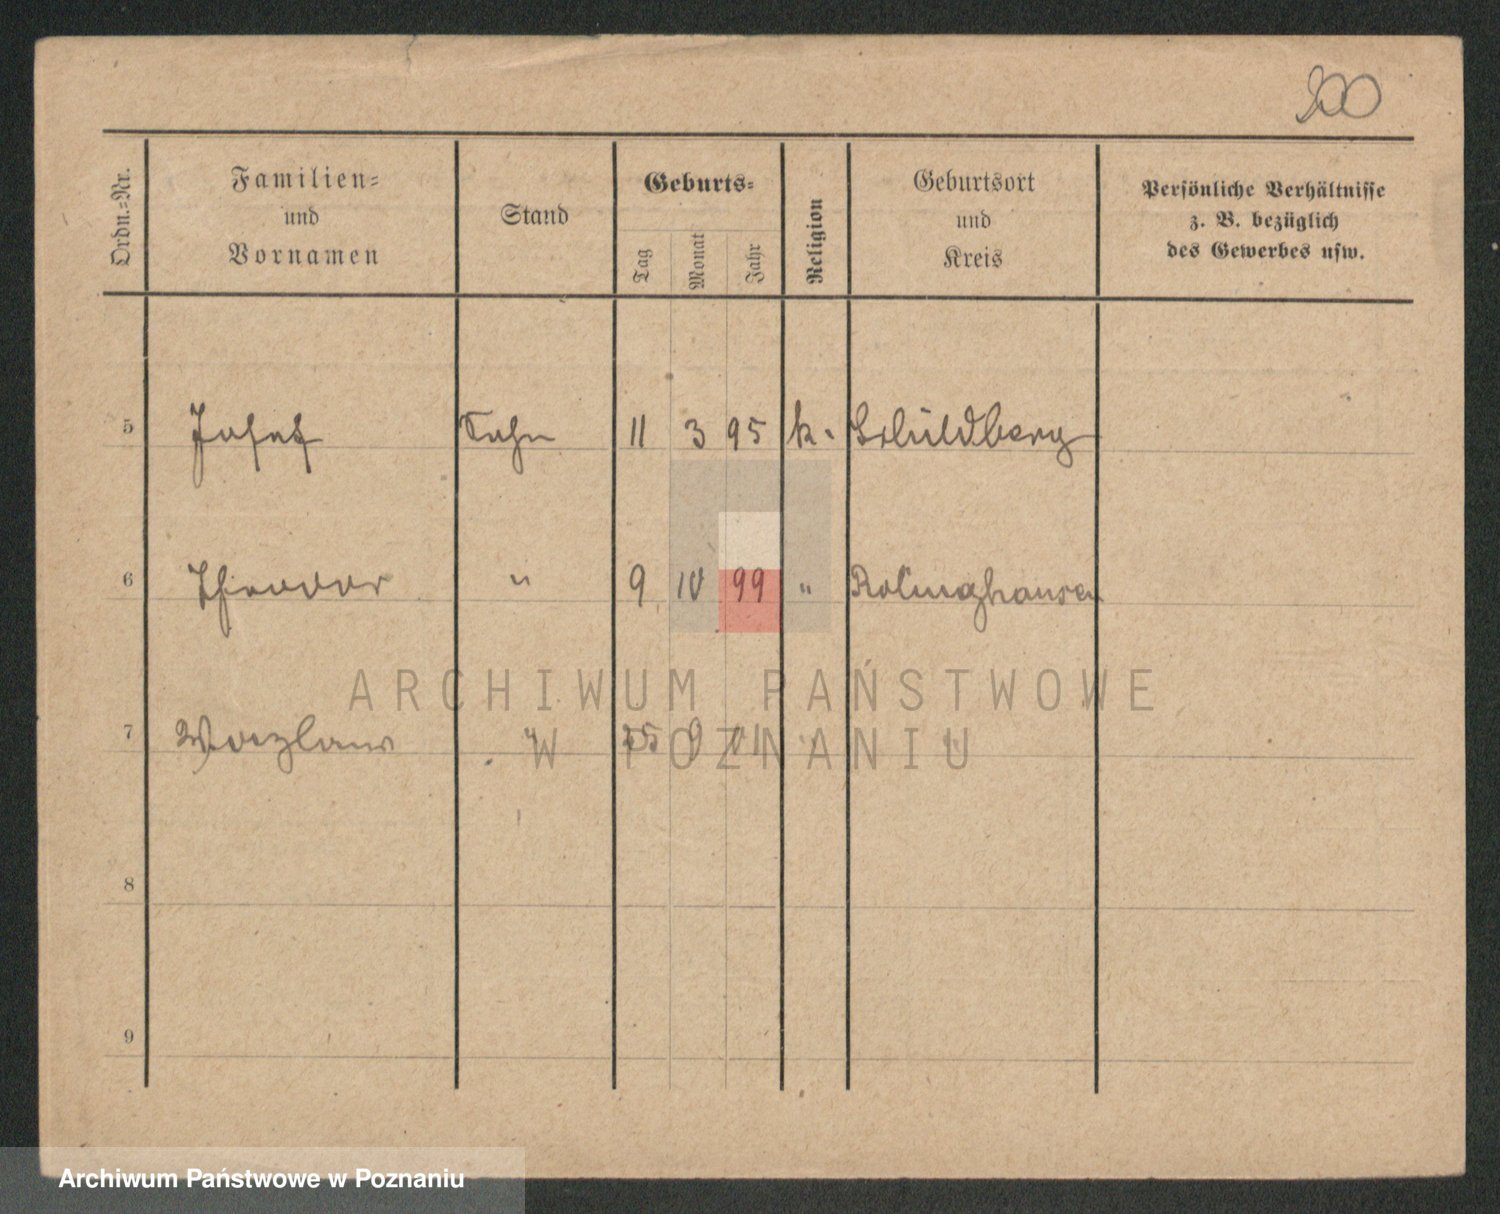 200
Ordn.-Nr.
Familien-
und
Vornamen
Stand
Geburts-
Tag
Monat
Jahr
Religion
Geburtsort
und
Kreis
Persönliche Verhältnisse
z. B. bezüglich
des Gewerbes usw.
5 Josef Sohn 11 3 95 k. Schildberg
6 Theodor " 9 10 99 "
ARCHIWUM PAŃSTWOWE
W POZNANIU
7 " 9 01 " "
8
9
Archiwum Państwowe w Poznaniu